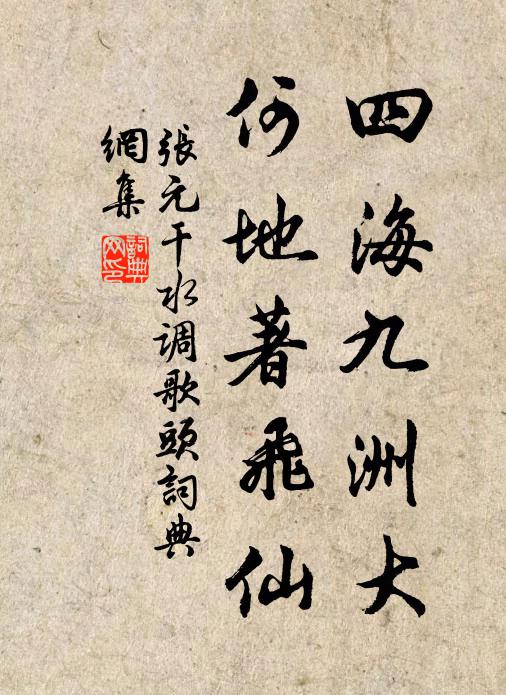 四海九洲大
何地著飛仙
張元干水调歌頭詞典
網集
詞典
网印